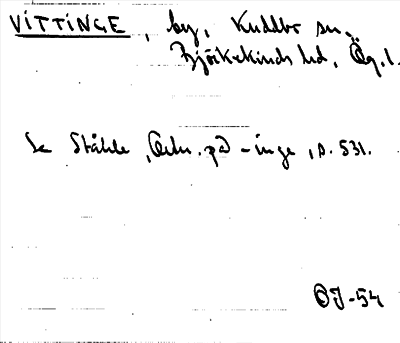 VITTINGE, by, Kuddby sn,
Björkekinds hd, Ög. l.
Se Ståhle, Ortn. på -inge, s. 531.
OJ-54